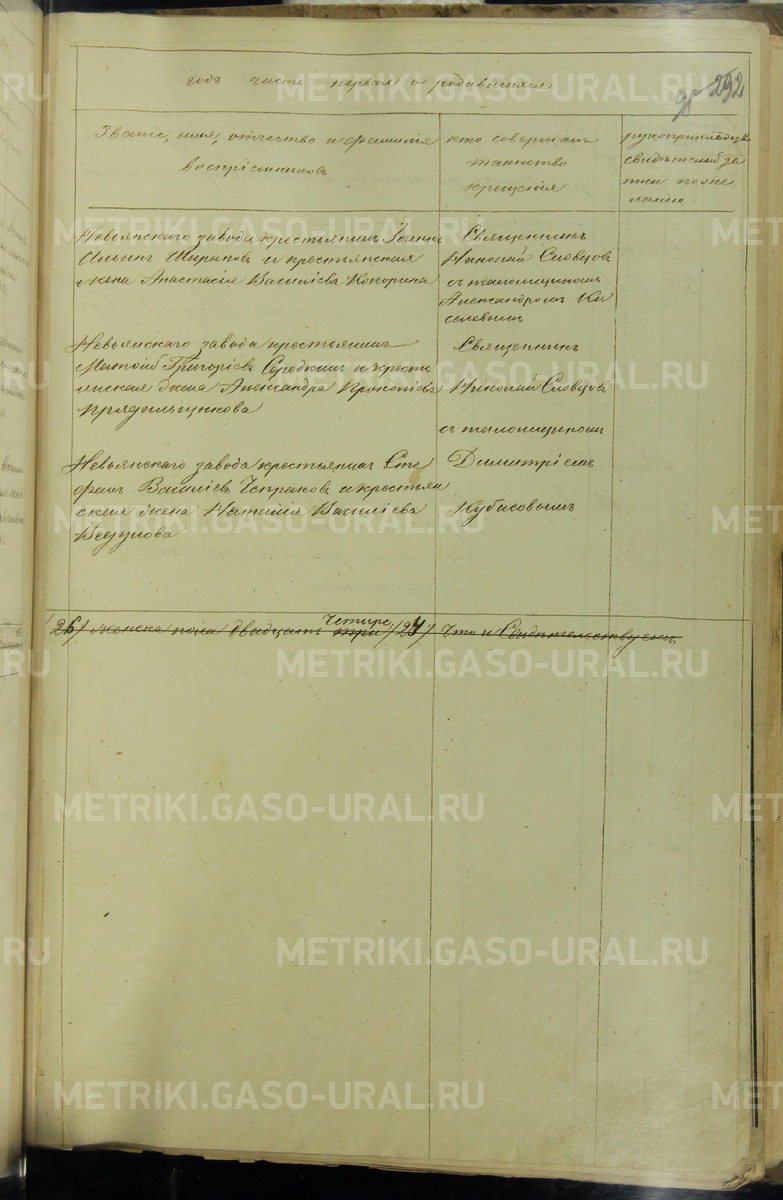 годъ часть первая о родившихся
292
Званіе, имя, отчество и фамилія
воспріемниковъ
кто совершалъ
таинство
крещенія
рукоприкладство
свидѣтелей за
писи по же
ланію
Невьянскаго завода крестьянинъ Іоаннъ
Ильинъ Ширяновъ и крестьянская
жена Анастасія Василіева Кокорина
Священникъ
Николай Словцовъ
съ псаломщикомъ
Александромъ Ки
селевымъ
Невьянскаго завода крестьянинъ
Матвій Григоріевъ Середкинъ и кресть
янская жена Александра Прокопіева
Прядильщикова
Священникъ
Николай Словцовъ
съ псаломщикомъ
Невьянскаго завода крестьянинъ Сте
фанъ Василіевъ Чепраковъ и крестьян
ская жена Наталія Василіева
Димитріемъ
Кубасовымъ
26/ женска пола двадцать три четыре /24/ Что и Свидѣтельствуемъ
METRIKI.GASO-URAL.RU